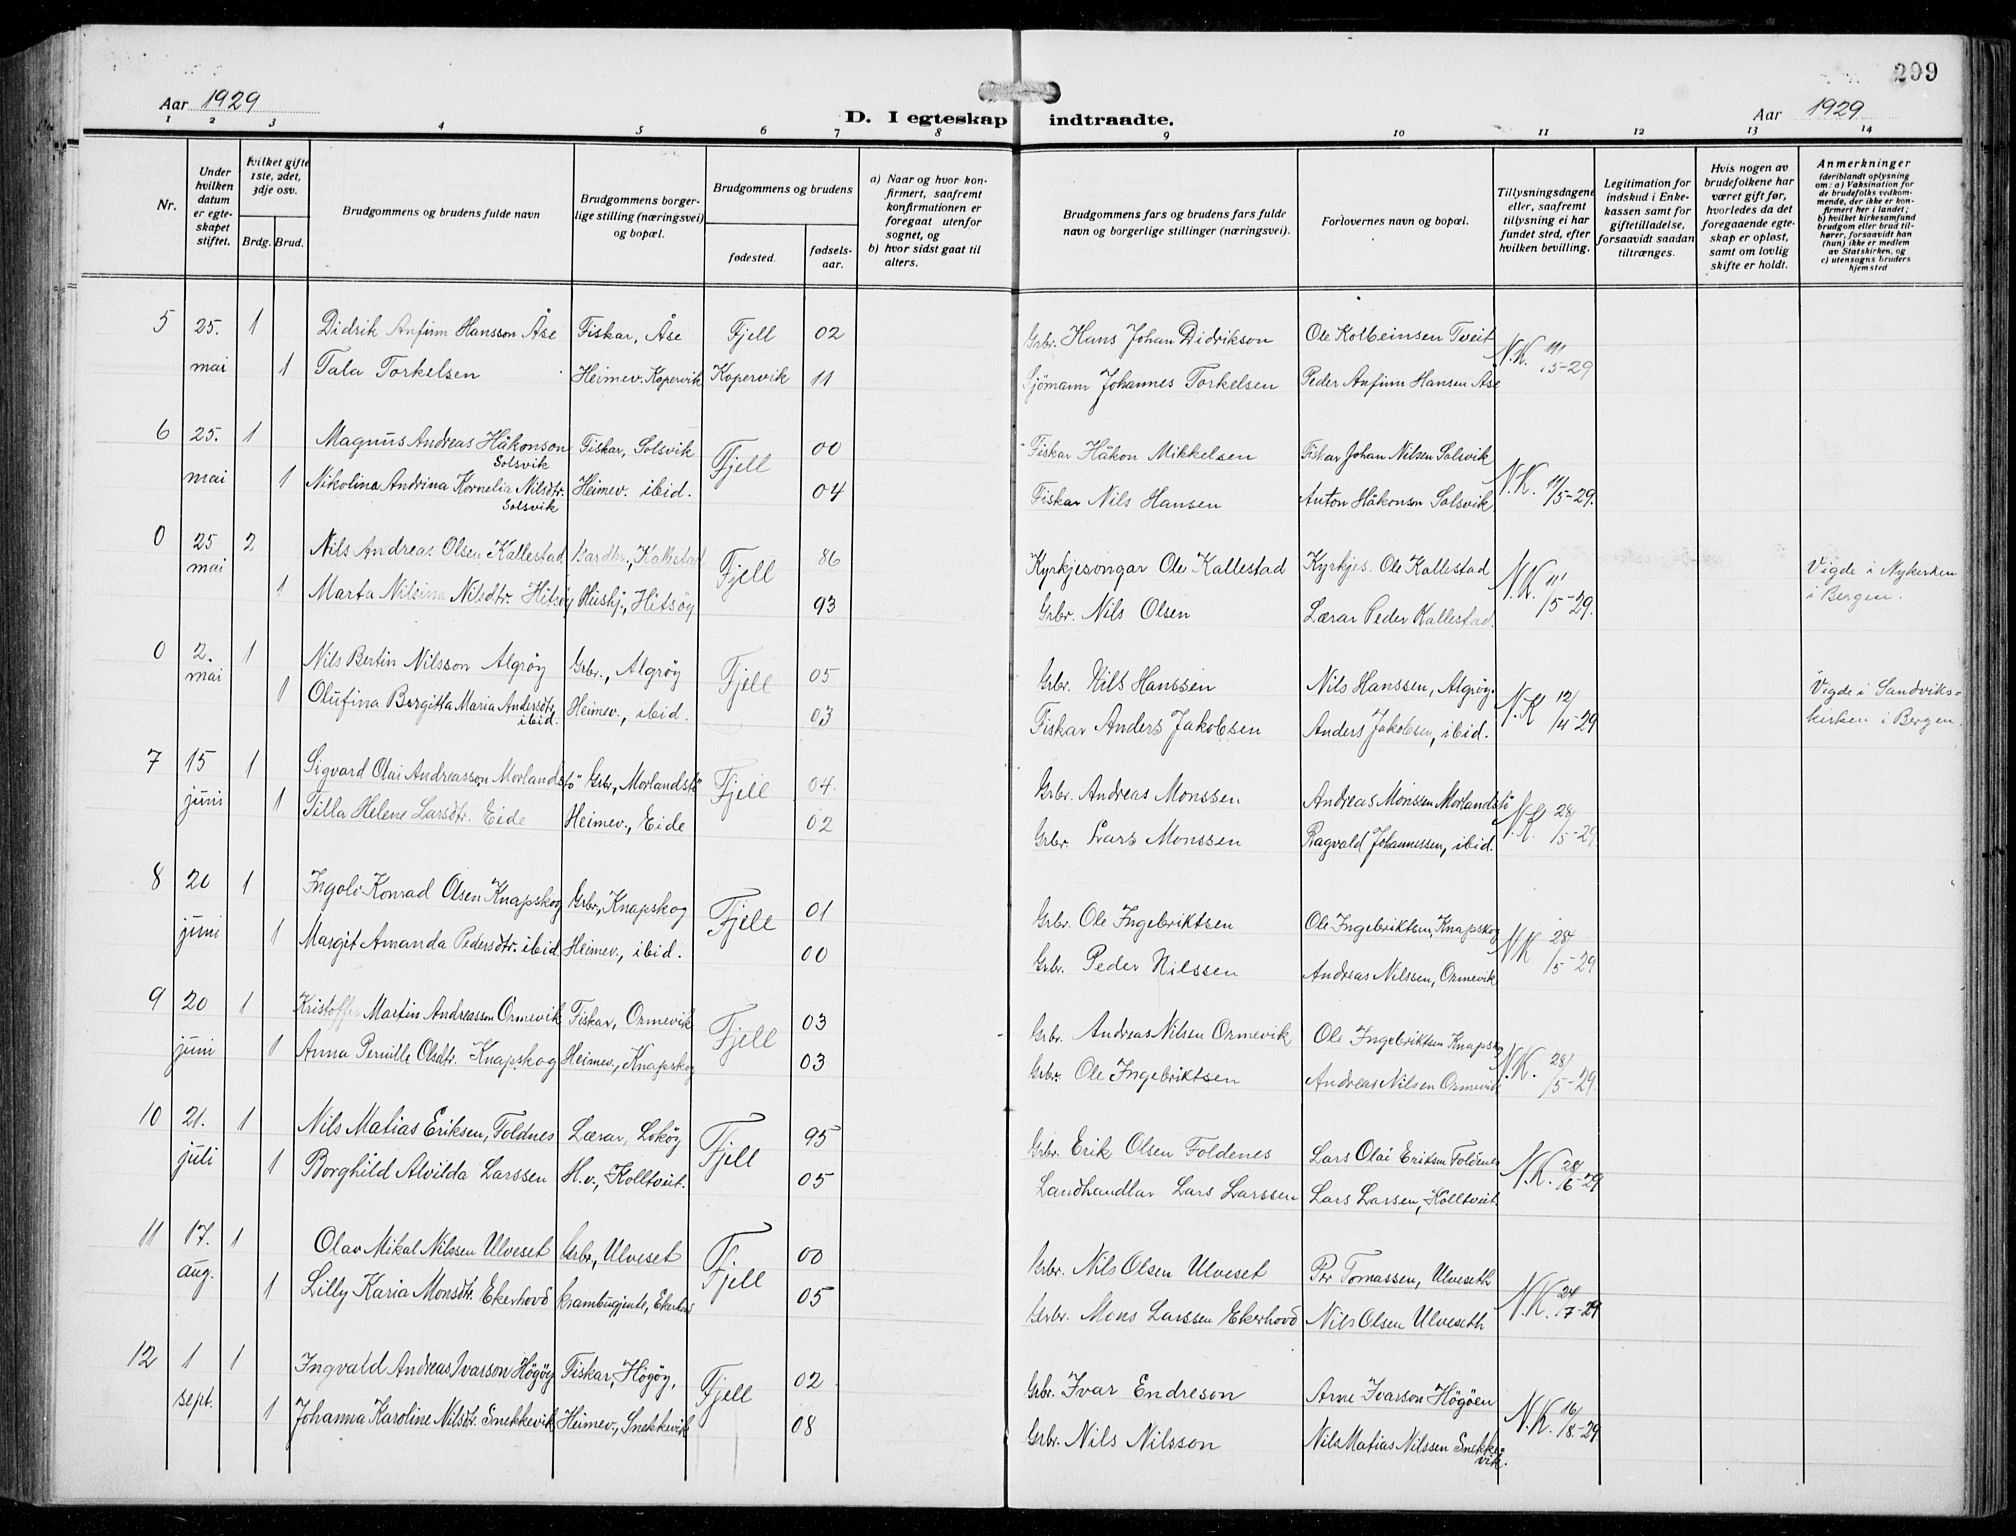 299
Aar 1929
D. I egteskap indtraadte.
Aar 1929
1 2 3 4 5 6 7 8 9 10 11 12 13 14
Nr.
Under hvilken datum er egteskapet stiftet.
Hvilket gifte 1ste, 2det, 3dje osv.
Brdg. Brud.
Brudgommens og brudens fulde navn
Brudgommens borgerlige stilling (næringsvei) og bopæl.
Brudgommens og brudens
fødested.
fødselsaar.
a) Naar og hvor konfirmert, saafremt konfirmationen er foregaat utenfor sognet, og
b) hvor sidst gaat til alters.
Brudgommens fars og brudens fars fulde navn og borgerlige stillinger (næringsvei).
Forlovernes navn og bopæl.
Tillysningsdagene eller, saafremt tillysning ei har fundet sted, efter hvilken bevilling.
Legitimation for indskud i Enkekassen samt for giftetilladelse, forsaavidt saadan tiltrænges.
Hvis nogen av brudefolkene har været gift før, hvorledes da det foregaaende egteskap er opløst, samt om lovlig skifte er holdt.
Anmerkninger (deriblandt oplysning om: a) Vaksination for de brudefolks vedkommende, der ikke er konfirmert her i landet; b) hvilket kirkesamfund brudgom eller brud tilhører, forsaavidt han (hun) ikke er medlem av Statskirken, og c) utensogns bruders hjemsted
5 25. 1 Didrik Anfinn Hansson Åse Fiskar, Åse Fjell 02 Grbr. Hans Johan Didrikson Ole Kolbeinsen Tveit N.K. 11/5-29
mai 1 Tala Torkelsen Heimev. Kopervik Kopervik 11 Sjömann Johannes Torkelsen Peder Anfinn Hansen Åse
6 25. 1 Magnus Andreas Håkonson Solsvik Fiskar, Solsvik Fjell 00 Fiskar Håkon Mikkelsen Fiskar Johan Nilsen Solsvik N.K. 11/5-29.
mai 1 Nikolina Andrina Kornelia Nilsdtr. Solsvik Heimev. ibid. 04 Fiskar Nils Hansen Anton Håkonson Solsvik
0 25 2 Nils Andreas Olsen Kallestad Gardbr., Kallestad Fjell 86 Kyrkjesongar Ole Kallestad Kyrkjes. Ole Kallestad N.K. 11/5-29. Vigde i Nykerken i Bergen.
mai 1 Marta Nilsina Nilsdtr. Hitsøy Hushj., Hitsöy 93 Grbr. Nils Olsen Lærar Peder Kallestad.
0 2. 1 Nils Bertin Nilsson Algrøy Grbr., Algrøy Fjell 05 Grbr. Nils Hanssen Nils Hanssen, Algrøy. N.K 12/4-29 Vigde i Sandvikskerken i Bergen.
mai 1 Olufina Bergitta Maria Andersdtr. ibid. Heimev., ibid. 03 Fiskar Anders Jakobsen Anders Jakobsen, ibid.
7 15 1 Sigvard Olai Andreasson Morlandstö Grbr., Morlandstö Fjell 04 Grbr. Andreas Monssen Andreas Monssen Morlandstö N.K. 28/5-29
juni 1 Tilla Helene Larsdtr. Eide Heimev., Eide 02 Grbr. Lars Monssen Ragvald Johannessen, ibid.
8 20 1 Ingolf Konrad Olsen Knapskog Grbr., Knapskog Fjell 01 Grbr. Ole Ingebriktsen Ole Ingebriktsen, Knapskog N.K 28/5-29
juni 1 Margit Amanda Pedersdtr. ibid Heimev., ibid. 00 Grbr. Peder Nilssen Andreas Nilssen, Ormevik
9 20 1 Kristoffer Martin Andreasson Ormevik Fiskar, Ormevik Fjell 03 Grbr. Andreas Nilsen Ormevik Ole Ingebriktsen Knapskog N.K. 28/5-29.
juni 1 Anna Pernille Olsdtr. Knapskog Heimev., Knapskog 03 Grbr. Ole Ingebriktsen Andreas Nilsen Ormevik
10 21. 1 Nils Matias Eriksen, Foldnes Lærar, Lokøy Fjell 95 Grbr. Erik Olsen Foldenes Lars Olai Eriksen Foldenes N.K. 28/6-29
juli 1 Borghild Alvilda Larssen H.v., Kolltveit. 05 Landhandlar Lars Larssen Lars Larsen, Kolltveit
11 17. 1 Olav Mikal Nilssen Ulveset Grbr., Ulveset Fjell 00 Grbr. Nils Olsen Ulveset Per Tomassen, Ulveseth N.K. 24/7-29
aug. 1 Lilly Karia Monsdtr. Ekerhovd Krambugjente, Ekerhovd 05 Grbr. Mons Larssen Ekerhovd Nils Olsen Ulveseth
12 1 1 Ingvald Andreas Ivarson Högöy Fiskar, Högöy, Fjell 02 Grbr. Ivar Endreson Arne Ivarson Högöen N.K. 16/8-29
sept. 1 Johanna Karoline Nilsdtr. Snekkevik Heimev., Snekkevik 08 Grbr. Nils Nilsson Nils Matias Nilssen Snekkevik.